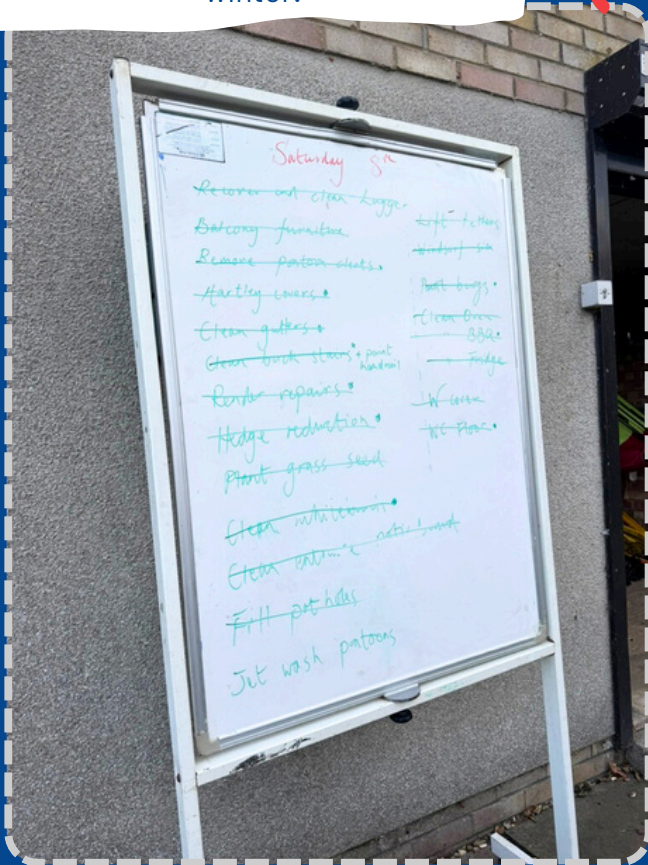 winter.
Saturday 8th
Recover and clean Logger
Balcony furniture
Remove pontoon cleats
Hartley covers
Clean gutters
Clean back stairs + paint
handrail
Render repairs
Hedge reduction
Plant grass seed
Clean
Clean notice board
Fill pot holes
Jet wash pontoons
Lift
Windsurf
bags
Clean Oven
BBQ
Fridge
W
WC Floor